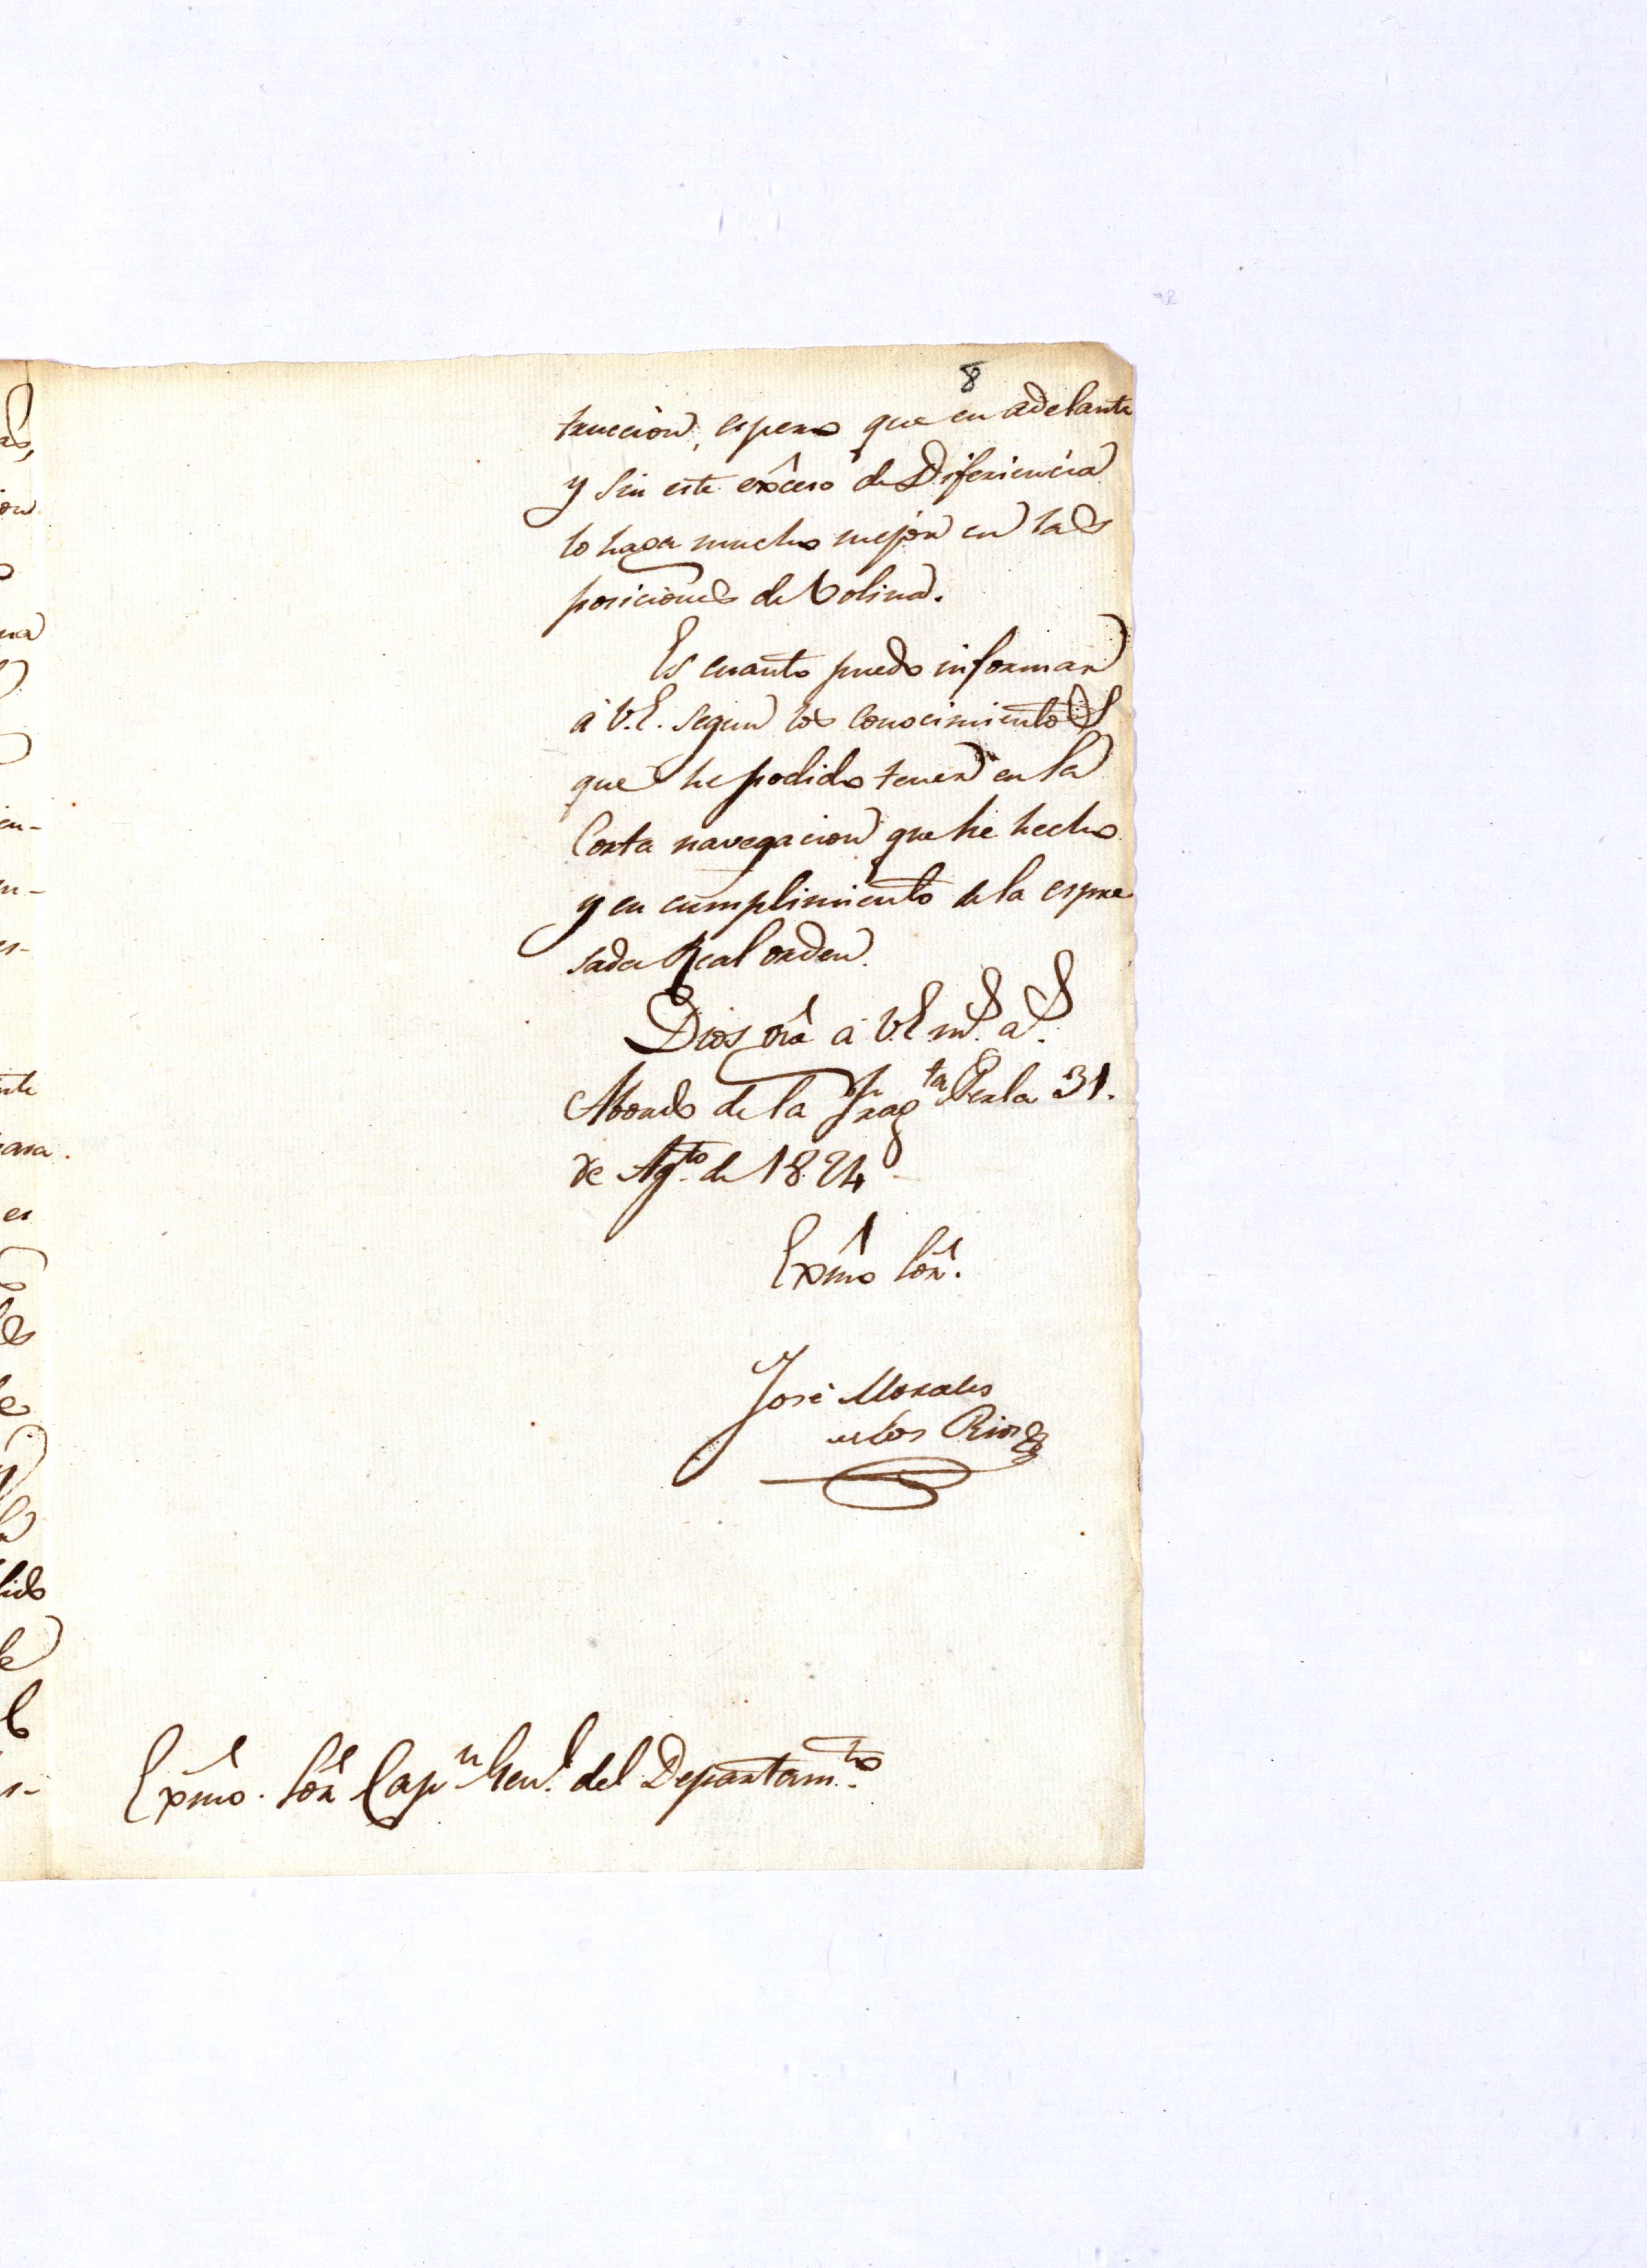 8
truccion, espero que en adelante
y sin este exceso de Diferiencia
lo haga mucho mejor en las
posiciones de Bolina.
Es cuanto puedo informar
á V.E. segun los conocimientos
que he podido tener en la
Corta navegacion que he hecho
y en cumplimiento de la espre
sada Real orden.
Dios gũe á V.E. m.s a.s
Abordo de la Frag.ta Perla 31.
de Ag.to de 1824
Exmo Sor.
José Morales
de los Rios
Exmo. Sor Cap.n Gen.l del Departam.to